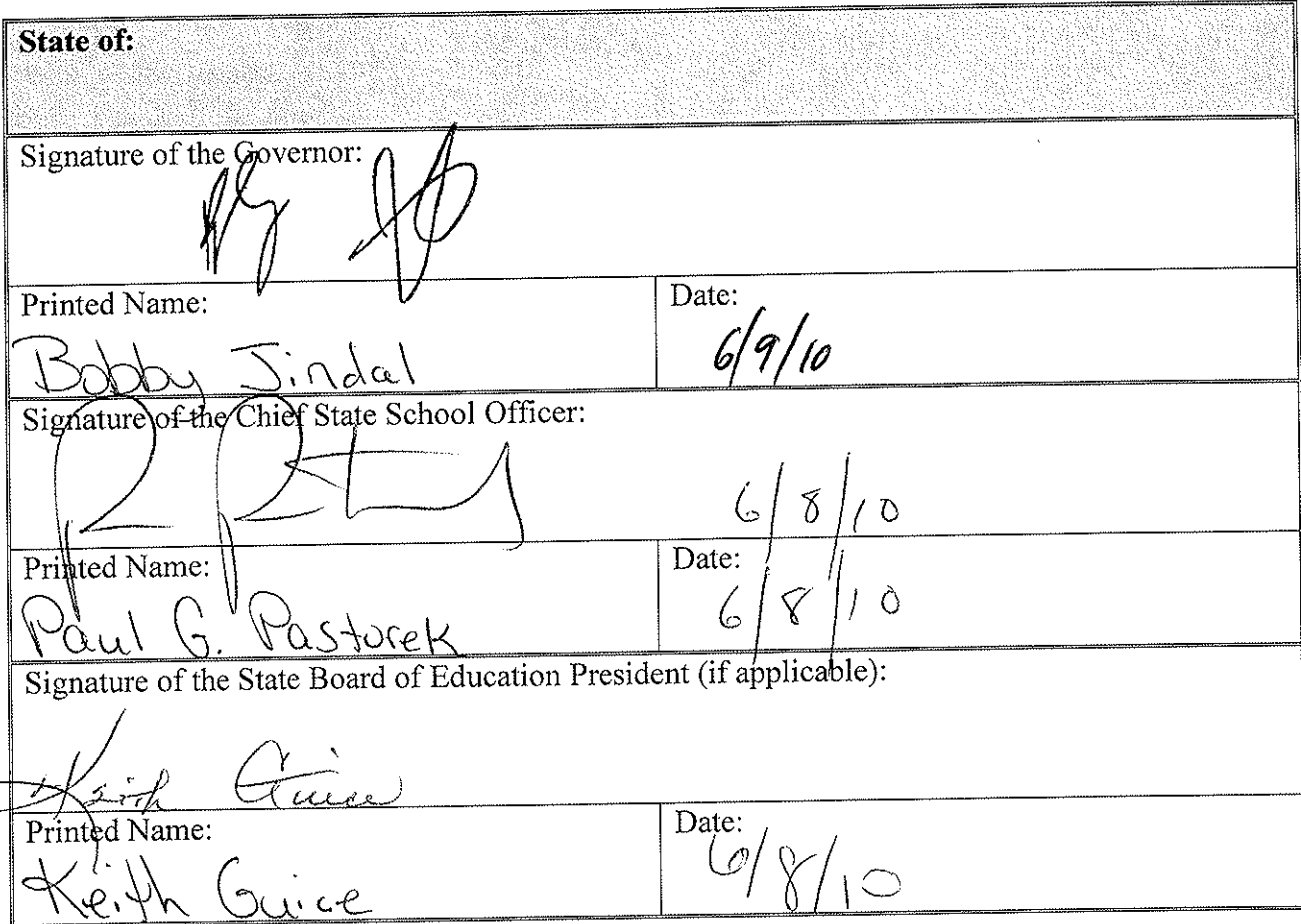 State of:
Signature of the Governor:
Printed Name:
Bobby Jindal
Date:
6/9/10
Signature of the Chief State School Officer:
6/8/10
Printed Name:
Paul G. Pastorek
Date:
6/8/10
Signature of the State Board of Education President (if applicable):
Keith Guice
Printed Name:
Keith Guice
Date:
6/8/10